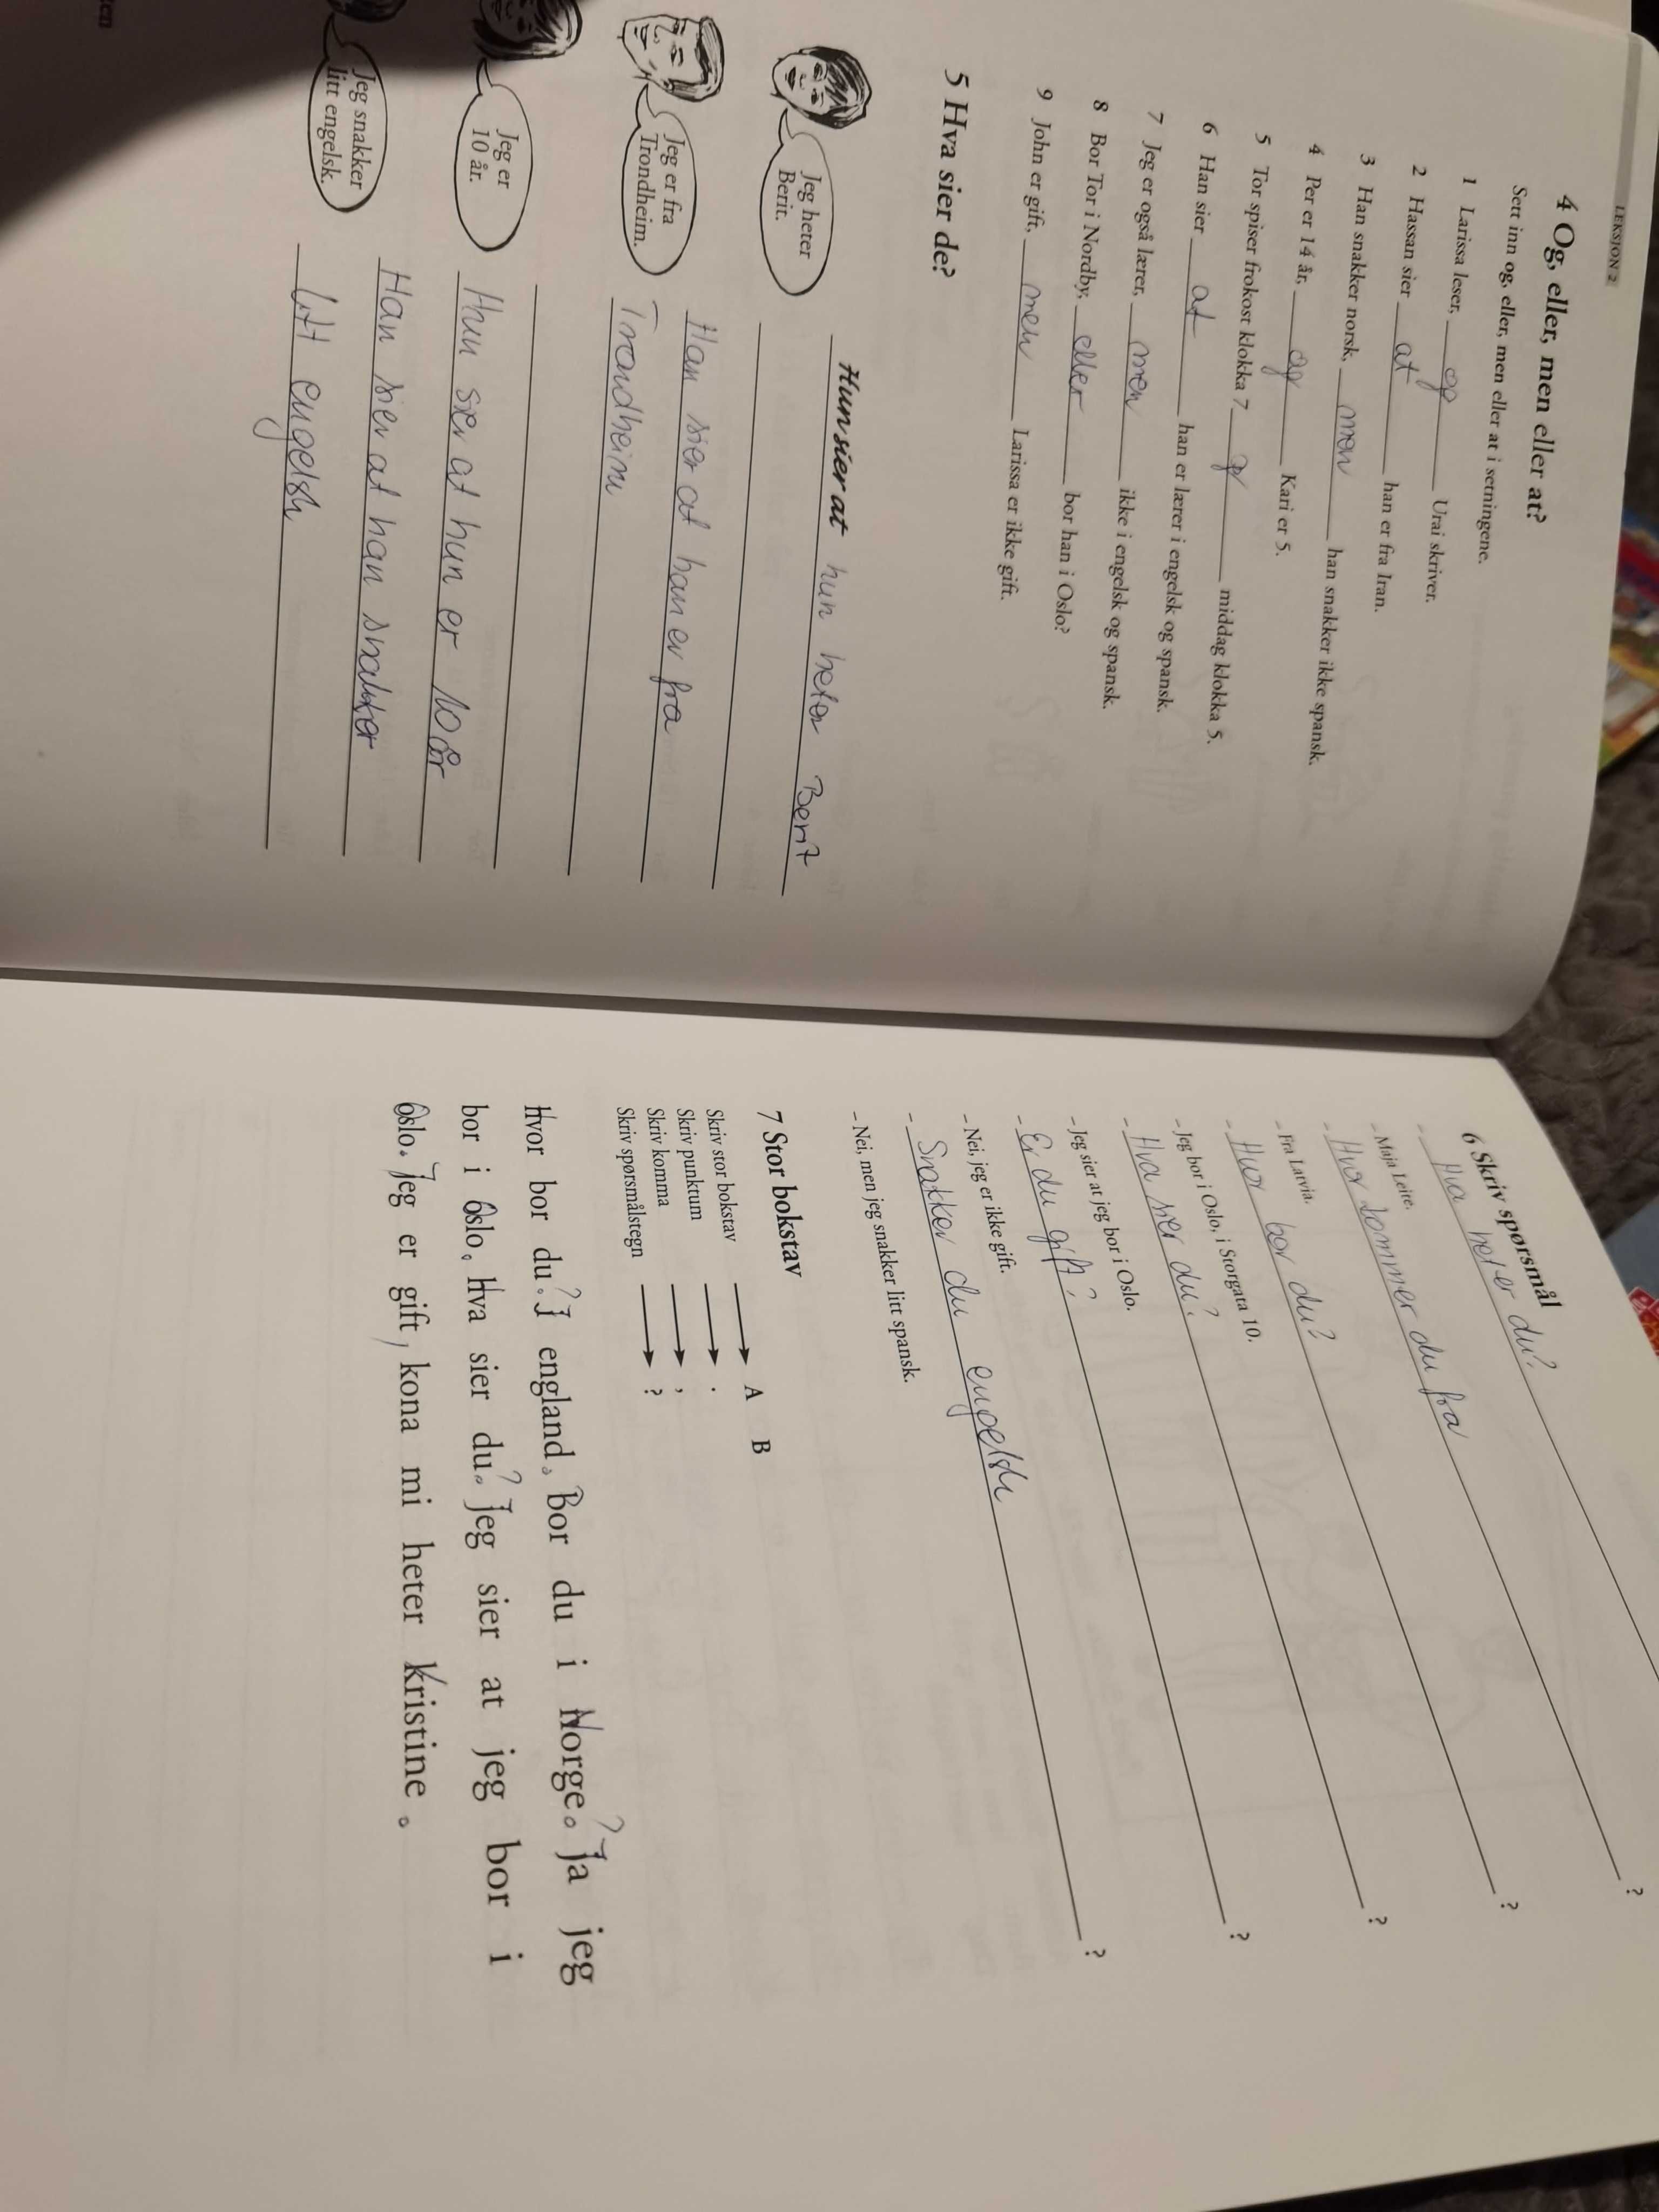 LEKSJON 2
4 Og, eller, men eller at?
Sett inn og, eller, men eller at i setningene.
1 Larissa leser, og Urai skriver.
2 Hassan sier at han er fra Iran.
3 Han snakker norsk, men han snakker ikke spansk.
4 Per er 14 år, og Kari er 5.
5 Tor spiser frokost klokka 7 og middag klokka 5.
6 Han sier at han er lærer i engelsk og spansk.
7 Jeg er også lærer, men ikke i engelsk og spansk.
8 Bor Tor i Nordby, eller bor han i Oslo?
9 John er gift, men Larissa er ikke gift.
5 Hva sier de?
Jeg heter
Berit.
Hun sier at hun heter Berit
Jeg er fra
Trondheim.
Han sier at han er fra
Trondheim
Jeg er
10 år.
Hun sier at hun er 10 år
Jeg snakker
litt engelsk.
Han sier at han snakker
litt engelsk
6 Skriv spørsmål
- Hva heter du? ?
- Maja Leite.
- Hvor kommer du fra ?
- Fra Latvia.
- Hvor bor du? ?
- Jeg bor i Oslo, i Storgata 10.
- Hva sier du? ?
- Jeg sier at jeg bor i Oslo.
- Er du gift? ?
- Nei, jeg er ikke gift.
- Snakker du engelsk ?
- Nei, men jeg snakker litt spansk.
7 Stor bokstav
Skriv stor bokstav → A B
Skriv punktum → .
Skriv komma → ,
Skriv spørsmålstegn → ?
Hvor bor du.? I england. Bor du i Norge.? Ja jeg
bor i Oslo. Hva sier du.? Jeg sier at jeg bor i
Oslo. Jeg er gift, kona mi heter Kristine.